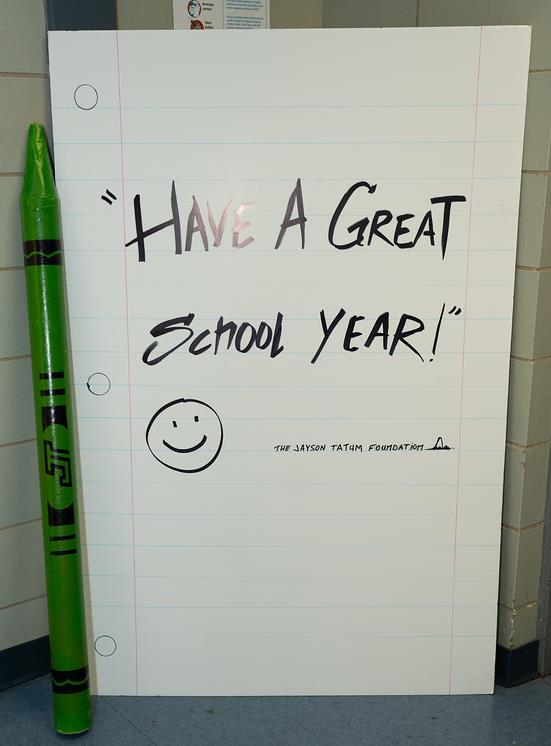 "HAVE A GREAT
SCHOOL YEAR!"
THE JAYSON TATUM FOUNDATION